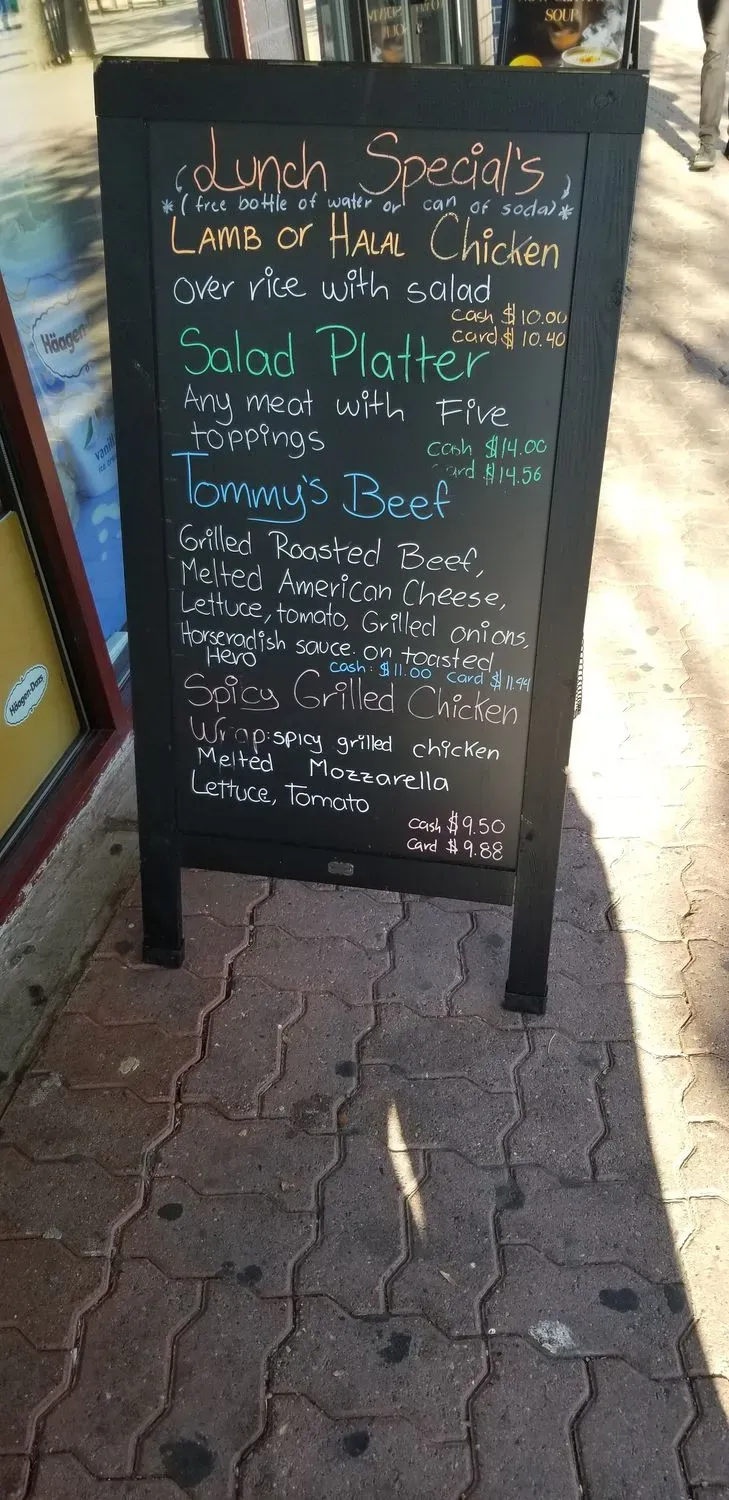 SOUP
Lunch Special's
*(free bottle of water or can of soda)*
LAMB or HALAL Chicken
over rice with salad
cash $10.00
card $10.40
Salad Platter
Any meat with Five
toppings
cash $14.00
card $14.56
Tommy's Beef
Grilled Roasted Beef,
Melted American Cheese,
Lettuce, tomato, Grilled onions,
Horseradish sauce. on toasted
Hero
cash: $11.00 card $11.44
Spicy Grilled Chicken
Wrap: spicy grilled chicken
Melted Mozzarella
Lettuce, Tomato
cash $9.50
card $9.88
Häagen
vanilla
Häagen-Dazs